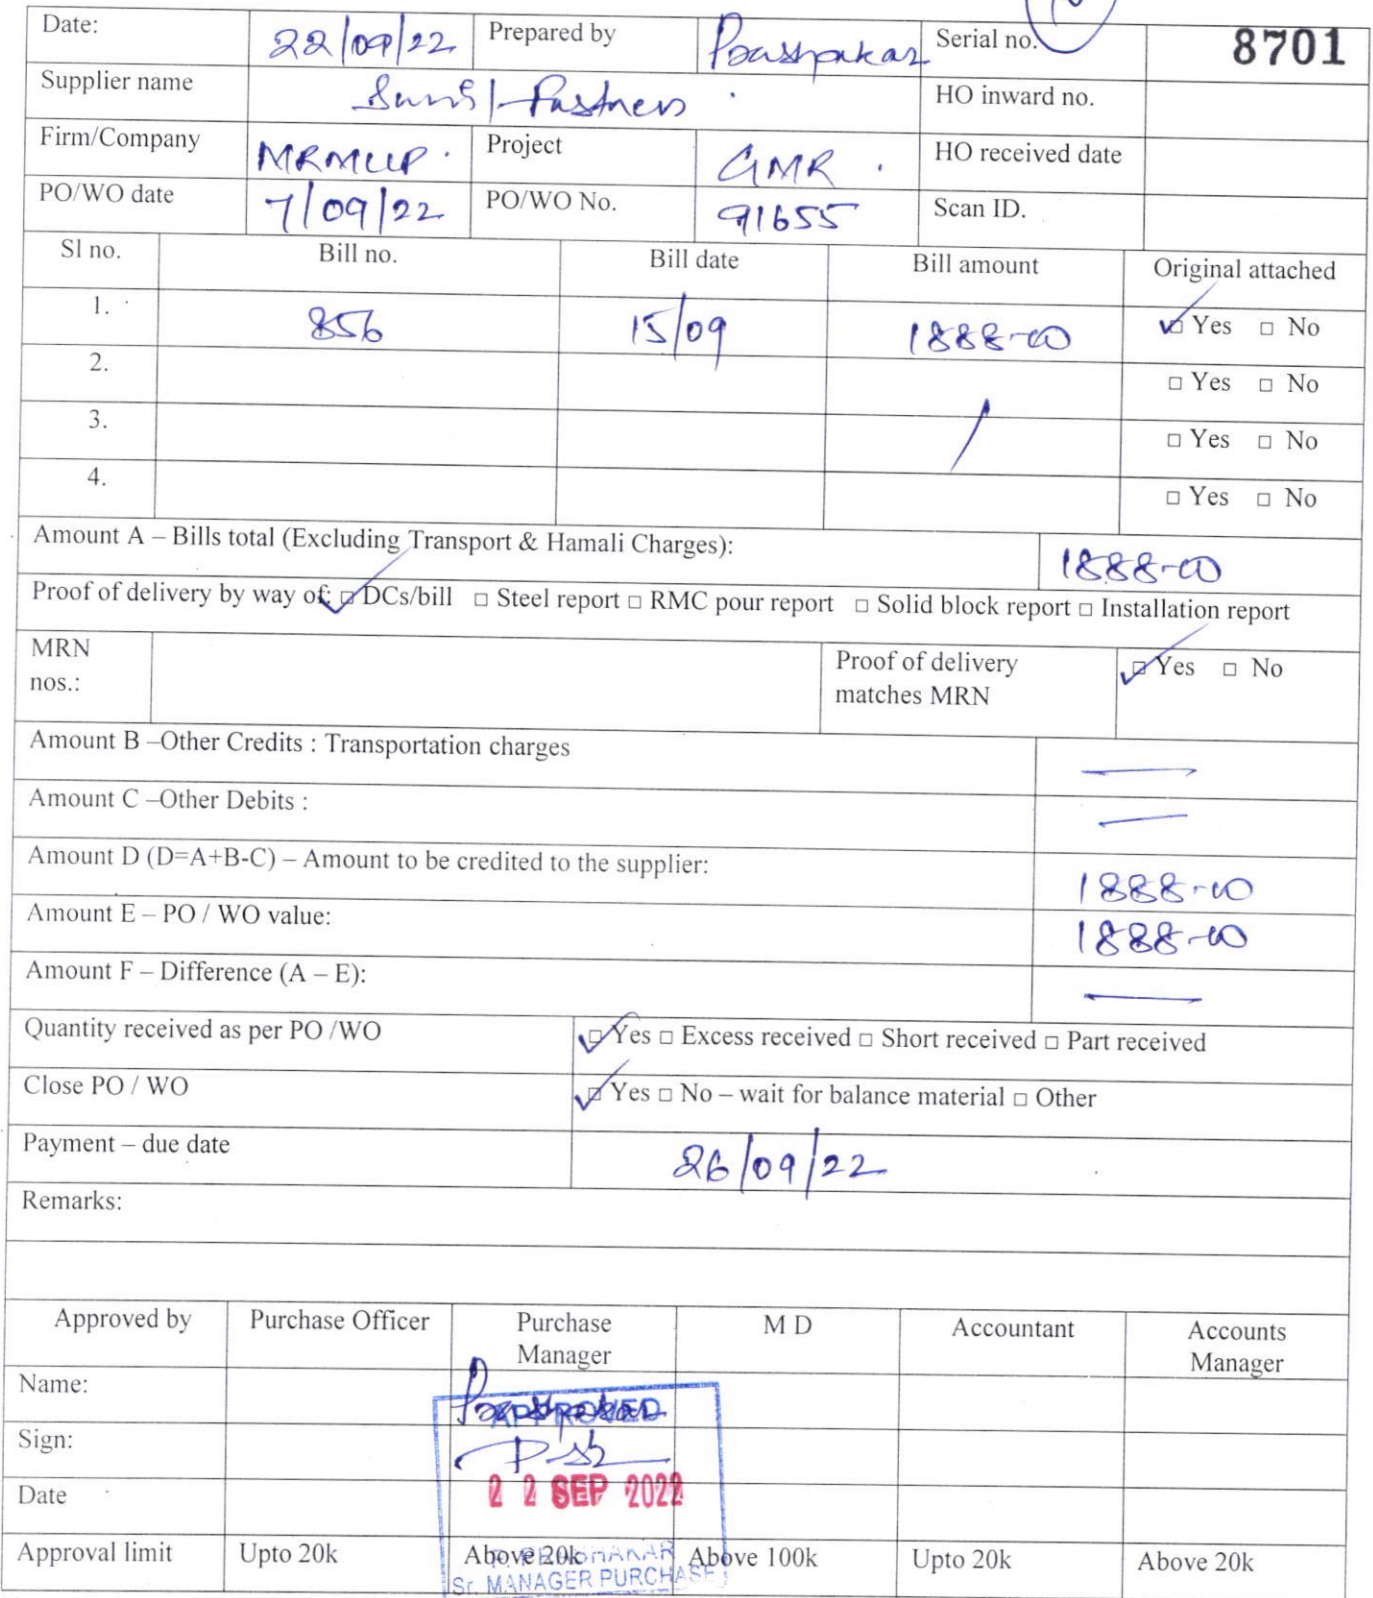 Date: 22/09/22 Prepared by Prashakar Serial no. 8701
Supplier name Sunil Fastners HO inward no.
Firm/Company MRMLLP. Project GMR. HO received date
PO/WO date 7/09/22 PO/WO No. 91655 Scan ID.
Sl no. Bill no. Bill date Bill amount Original attached
1. 856 15/09 1888-00 ☑ Yes □ No
2. □ Yes □ No
3. □ Yes □ No
4. □ Yes □ No
Amount A – Bills total (Excluding Transport & Hamali Charges): 1888-00
Proof of delivery by way of: ☑ DCs/bill □ Steel report □ RMC pour report □ Solid block report □ Installation report
MRN nos.: Proof of delivery matches MRN ☑ Yes □ No
Amount B –Other Credits : Transportation charges —
Amount C –Other Debits : —
Amount D (D=A+B-C) – Amount to be credited to the supplier: 1888-00
Amount E – PO / WO value: 1888-00
Amount F – Difference (A – E): —
Quantity received as per PO /WO ☑ Yes □ Excess received □ Short received □ Part received
Close PO / WO ☑ Yes □ No – wait for balance material □ Other
Payment – due date 26/09/22
Remarks:
Approved by Purchase Officer Purchase Manager M D Accountant Accounts Manager
Name: APPROVED
Sign:
Date 22 SEP 2022
Approval limit Upto 20k Above 20k Above 100k Upto 20k Above 20k
PRABHAKAR
Sr. MANAGER PURCHASE